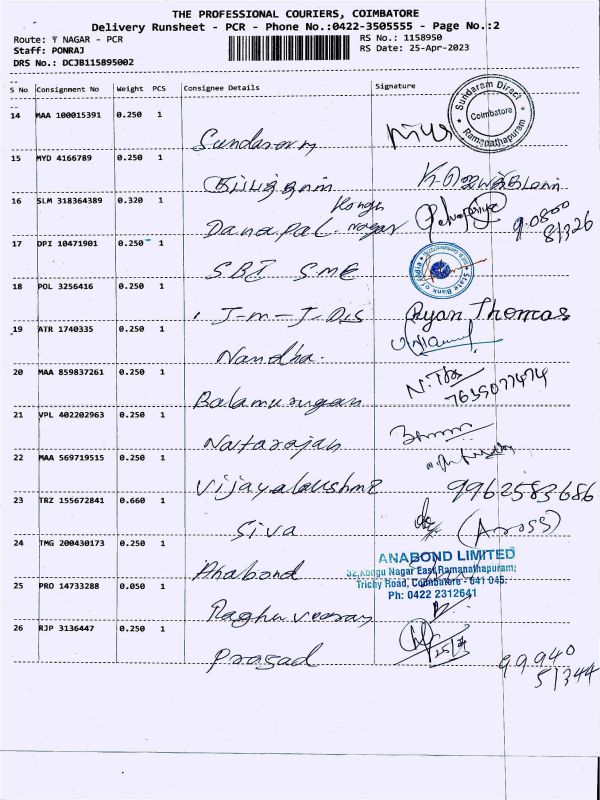 THE PROFESSIONAL COURIERS, COIMBATORE
Delivery Runsheet - PCR - Phone No.:0422-3505555 - Page No.:2
Route: T NAGAR - PCR
RS No.: 1158950
Staff: PONRAJ
RS Date: 25-Apr-2023
DRS No.: DCJB115895002
S No Consignment No Weight PCS Consignee Details Signature
14 MAA 100015391 0.250 1
Sundaram
Sundaram Direct
Coimbatore
Ramanathapuram
15 MYD 4166789 0.250 1
16 SLM 318364389 0.320 1
Kongu
Danapal. Nagar
90800
81326
17 DPI 10471901 0.250 1
SBI SME
State Bank of India
18 POL 3256416 0.250 1
J-m-J-Dis Ryan Thomas
19 ATR 1740335 0.250 1
Nandha.
20 MAA 859837261 0.250 1
Balamurugan
7639077474
21 VPL 402202963 0.250 1
Natarajan
22 MAA 569719515 0.250 1
Vijayalaushme 9962583686
23 TRZ 155672841 0.660 1
Siva
24 TMG 200430173 0.250 1
Anabond
ANABOND LIMITED
32, Kongu Nagar East, Ramanathapuram,
Trichy Road, Coimbatore - 641 045.
Ph: 0422 2312641
25 PRO 14733288 0.050 1
Raghu veeran
26 RJP 3136447 0.250 1
Prasad
25/4
99940
51344